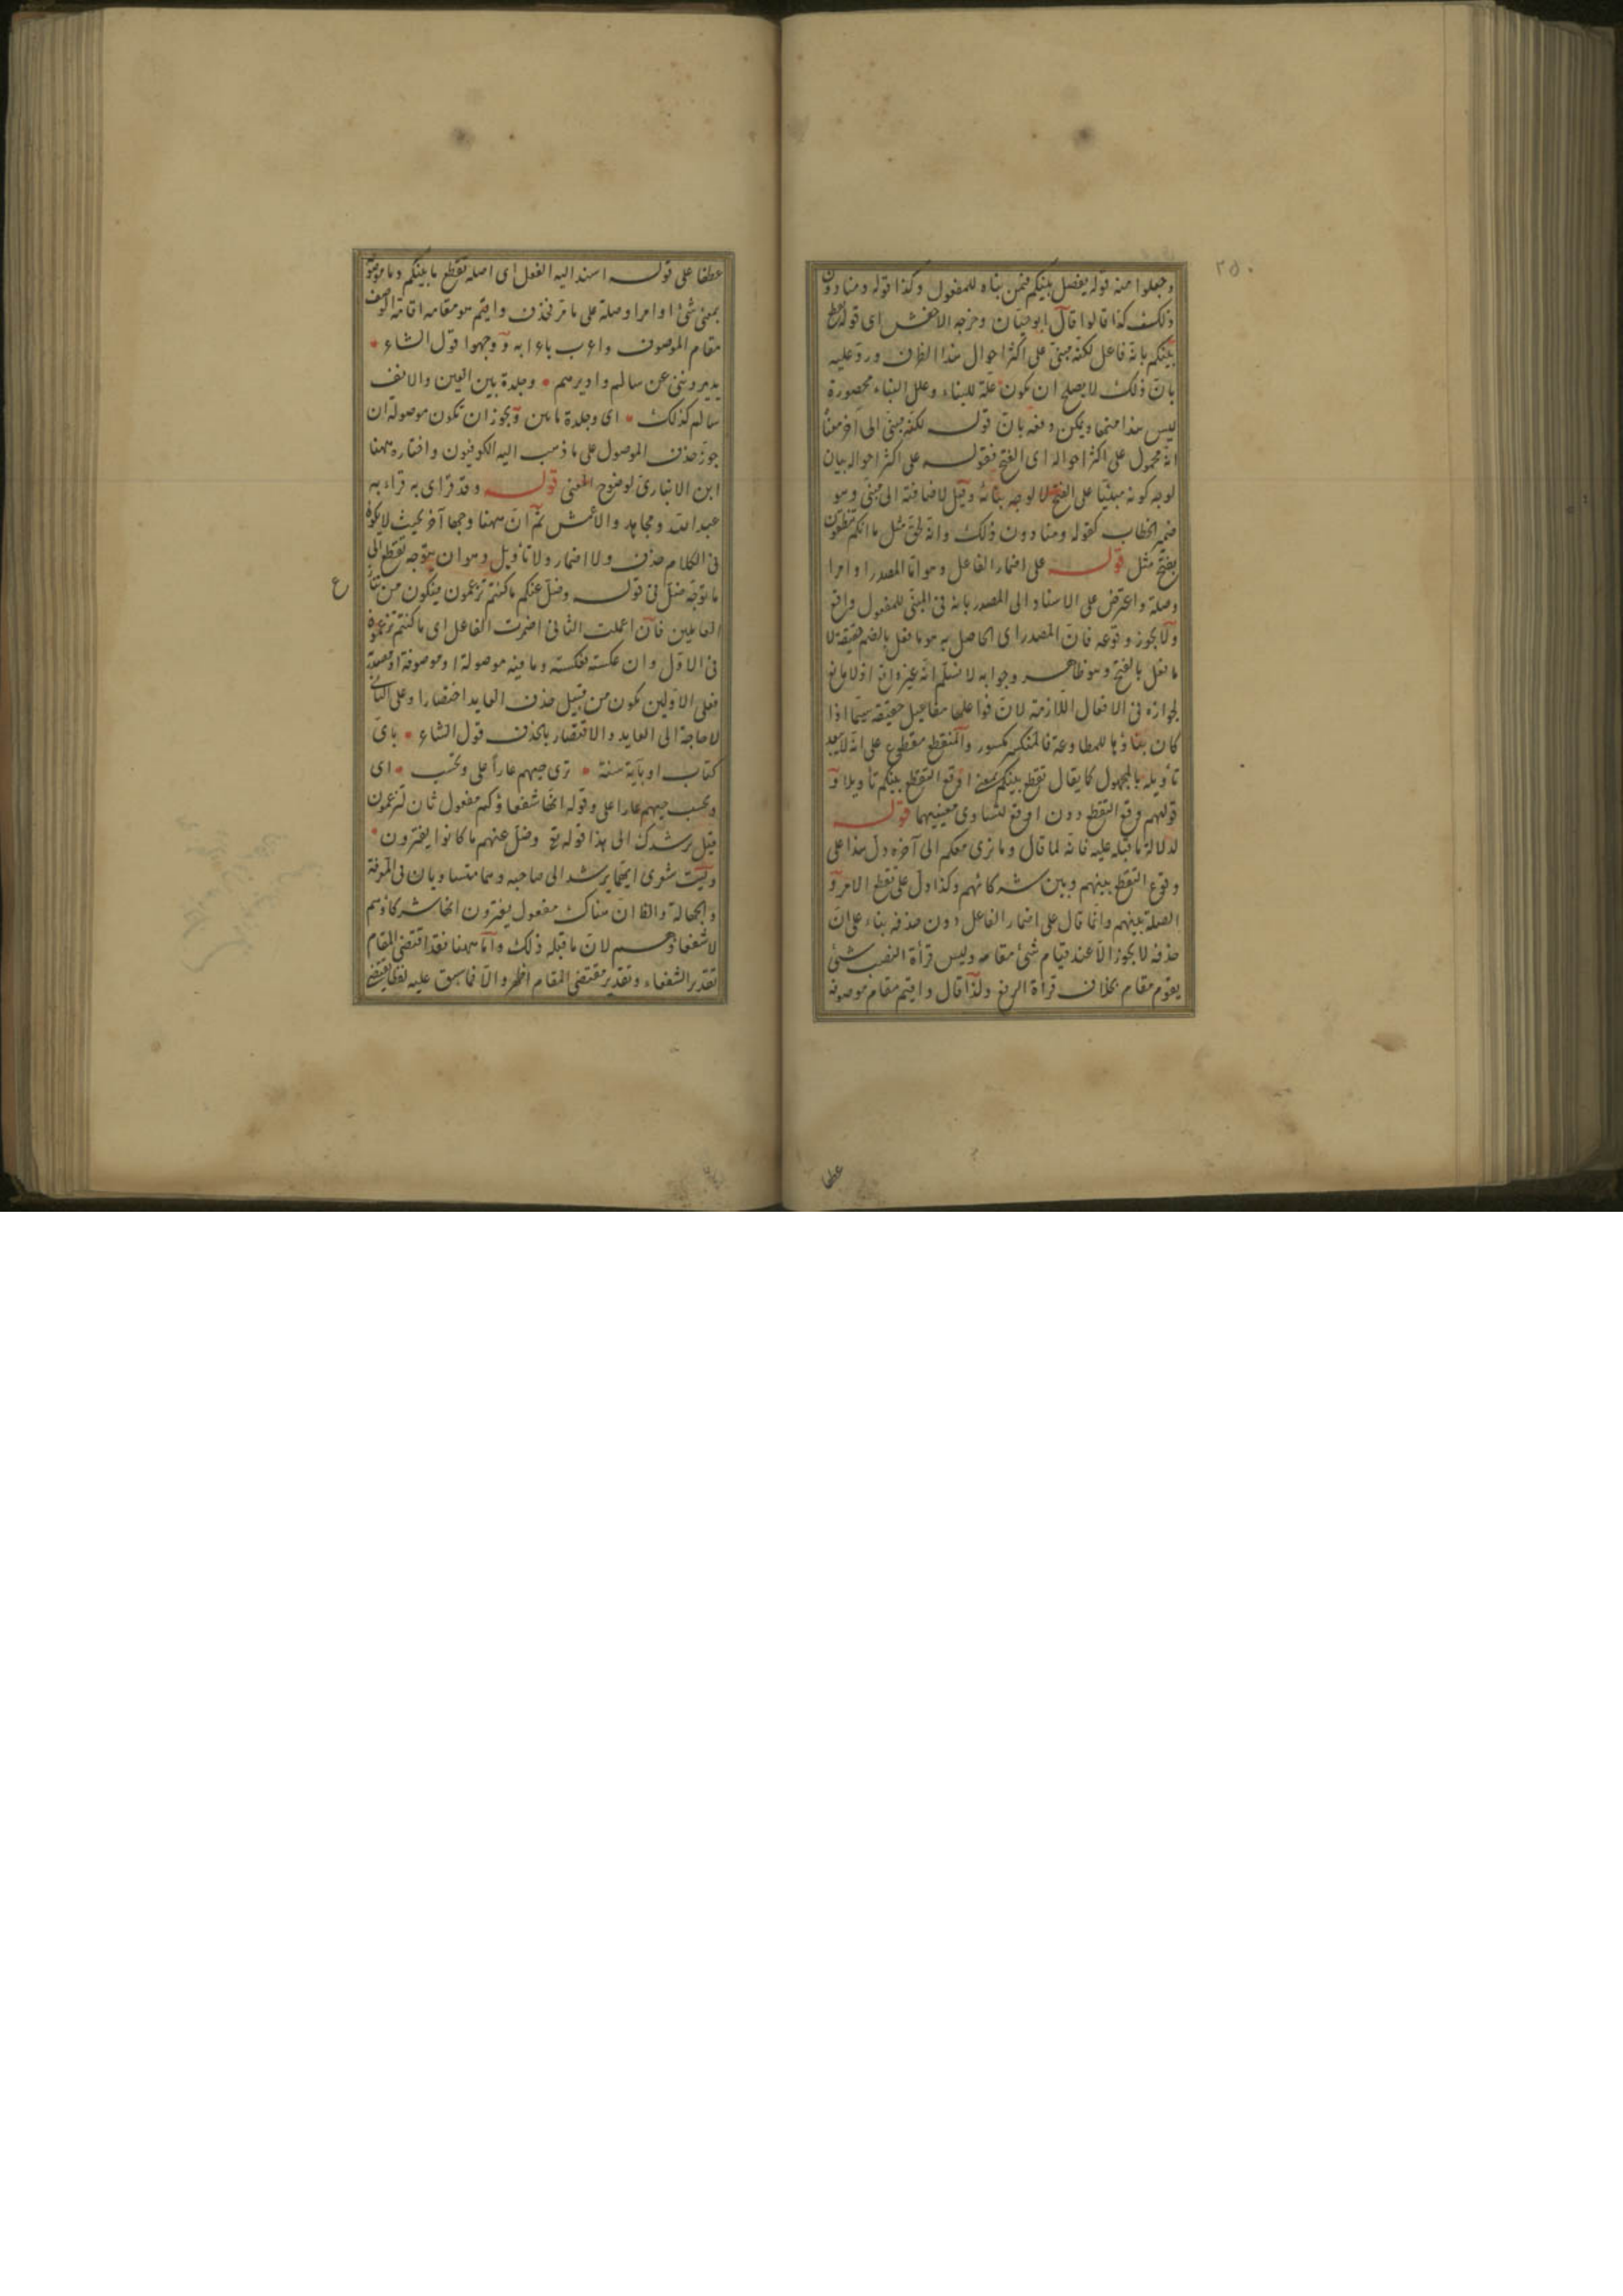 ٢٥٠
وجعلوا منه قوله يفصل بينكم فيمن بناه للمفعول وكذا قوله ومنا دون
ذلك كذا قالوا قال ابو حيان وخرجه الاخفش اى قوله تقطع
بينكم بانه فاعل لكنه مبنى على اكثر احوال هذا الظرف ورد عليه
بان ذلك لا يصلح ان يكون علة للبناء وعلل البناء محصورة
ليس هذا منها ويمكن دفعه بان قوله لكنه مبنى الى آخره معناه
انه محمول على اكثر احواله اى الفتح فقوله على اكثر احواله بيان
لوجه كونه مبنيا على الفتح لا لوجه بنائه وقيل لاضافته الى مبنى وهو
ضمير الخطاب كقوله ومنا دون ذلك وانه لحق مثل ما انكم تنطقون
بفتح مثل قوله على اضمار الفاعل وهو اما المصدر او امرا
وصلة واعترض على الاسناد الى المصدر بانه فى المبنى للمفعول واقع
ولا يجوز وقوعه فان المصدر اى الحاصل به هو ما فعل بالضم حقيقة لا
ما فعل بالفتح وهو ظاهر وجوابه لا نسلم انه غير واقع اذ لا مانع
لجوازه فى الافعال اللازمة لان فواعلها مفاعيل حقيقة سيما اذا
كان بناؤها للمطاوعة فالمنكسر مكسور والمنقطع مقطوع على انه لا يبعد
تأويله بالمجهول كما يقال تقطع بينكم بمعنى اوقع التقطع بينكم تأويلا و
قولهم وقع التقطع دون اوقع لتساوى معنييهما قوله
لدلالة ما قبله عليه فانه لما قال وما نرى معكم الى آخره دل هذا على
وقوع التقطع بينهم وبين شركائهم وكذا دل على تقطع الامر و
الصلة بينهم وانما قال على اضمار الفاعل دون حذفه بناء على ان
حذفه لا يجوز الا عند قيام شئ مقامه وليس قرأة النصب شئ
يقوم مقام بخلاف قرأة الرفع ولذا قال واقيم مقام موصوفه
عطفا
عطفا على قوله اسند اليه الفعل اى اصله تقطع ما بينكم وما موصوفة
بمعنى شئ او امرا وصلة على ما مر فحذف واقيم هو مقامه اقامة الوصف
مقام الموصوف واعرب باعرابه ووجهوا قول الشاعر
يديروننى عن سالم واديرهم وجلدة بين العين والانف
سالم كذلك اى وجلدة ما بين ويجوز ان تكون موصولة ان
جوز حذف الموصول على ما ذهب اليه الكوفيون واختاره ههنا
ابن الانبارى لوضوح المعنى قوله وقد قرأى به قراء به
عبد الله ومجاهد والاعمش ثم ان ههنا وجها آخر بحيث لا يكون
فى الكلام حذف ولا اضمار ولا تأويل وهو ان يتوجه تقطع الى
ما توجه ضل فى قوله وضل عنكم ما كنتم تزعمون فيكون من تنازع
ع
العاملين فان اعملت الثانى اضمرت الفاعل اى ما كنتم تزعمونه
فى الاول وان عكسته فعكسته وما فيه موصولة او موصوفة او مصدرية
فعلى الاولين يكون من قبيل حذف العايد اختصارا وعلى الثالث
لا حاجة الى العايد والاقتصار بالحذف قول الشاعر باى
كتاب او باية سنة ترى حبهم عارا على وتحسب اى
وتحسب حبهم عارا على وقوله انها شفعاؤكم مفعول ثان لتزعمون
قيل يرشدك الى هذا قوله تع وضل عنهم ما كانوا يفترون
وليت شعرى ايهما يرشد الى صاحبه وهما متساويان فى المعرفة
والجهالة والظ ان هناك مفعول يفترون انها شركاؤهم
لا شفعاؤهم لان ما قبله ذلك واما ههنا فقد اقتضى المقام
تقدير الشفعاء وتقدير مقتضى المقام اظهر والا فما سبق عليه لفظا يقتضى